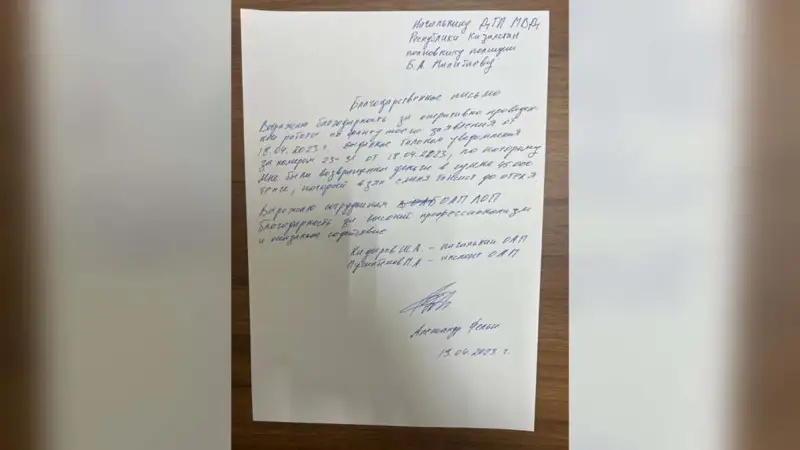 Начальнику ДТП МВД
Республики Казахстан
полковнику полиции
Б.А.
Благодарственное письмо
Выражаю благодарность за оперативно
работу по факту моего заявления от
18.04.2023 г. талон уведомления
за номером 23-31 от 18.04.2023, по которому
мне были возвращены деньги в сумме 45.000
тенге, который взял с меня таксист до отеля
Выражаю сотрудникам ОАП ЛОП
благодарность за высокий профессионализм
и оказанное содействие
Кадыров – начальник ОАП
– ОАП
Александр
19.04.2023 г.